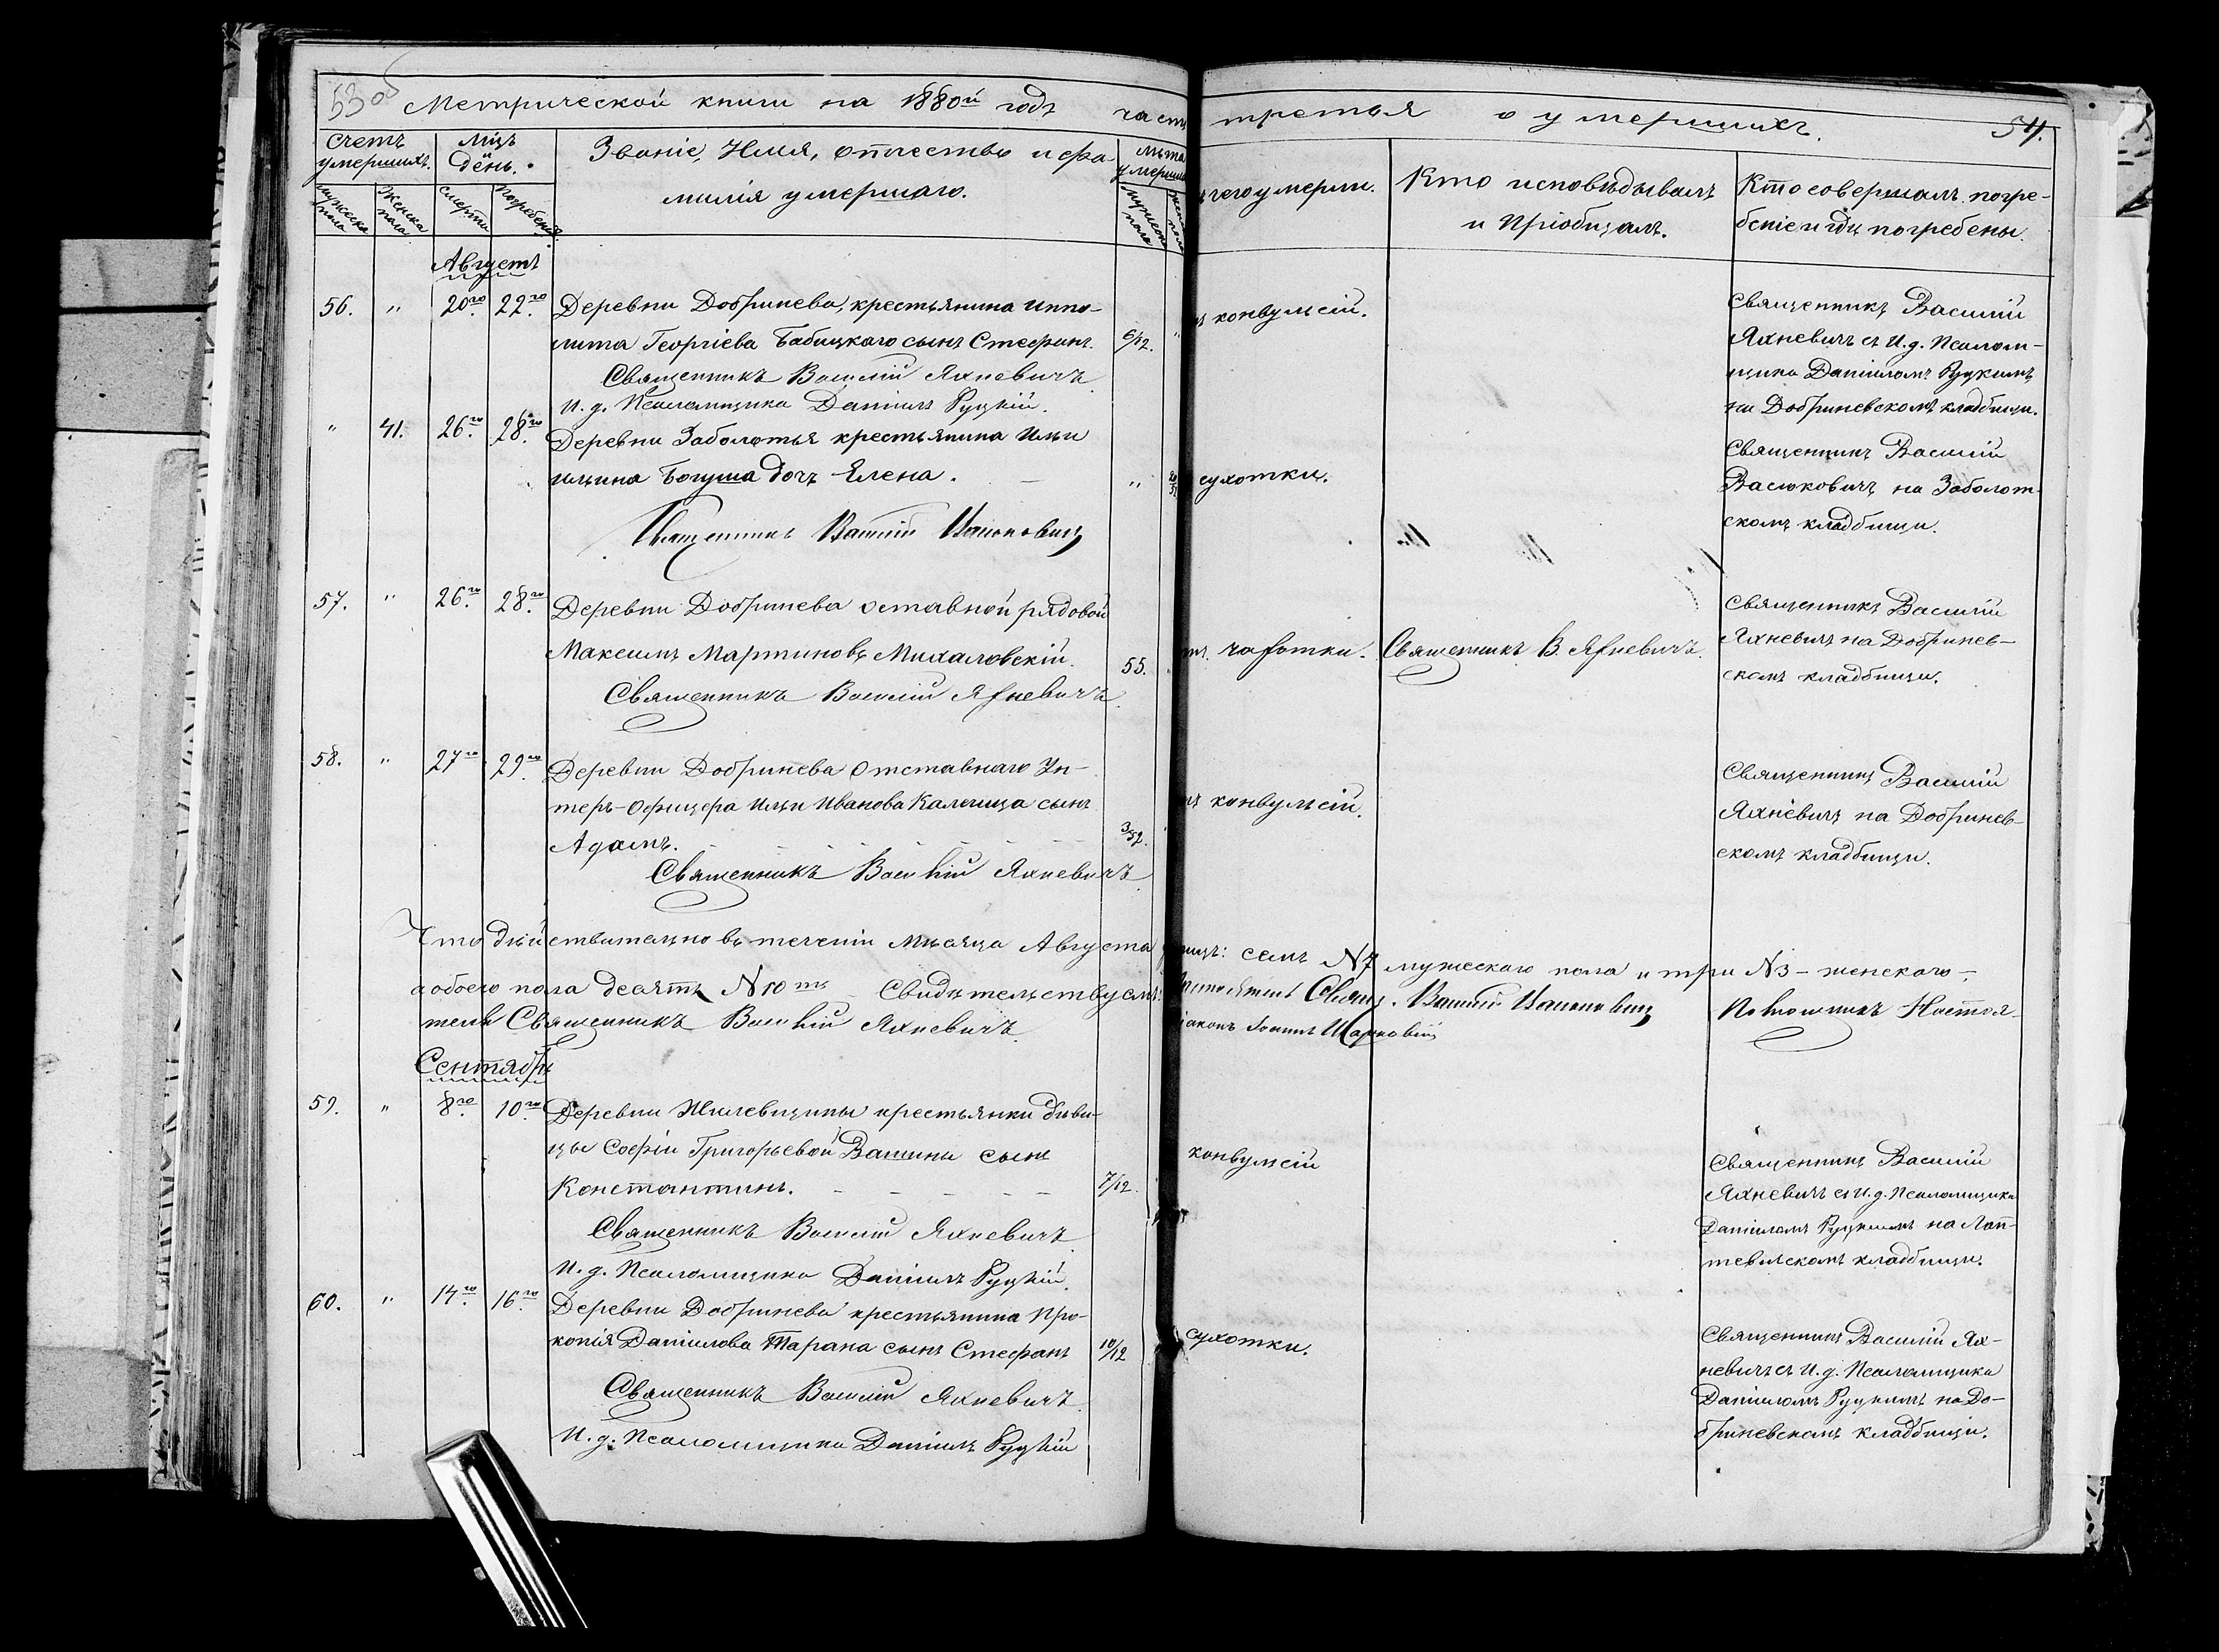 53 об
Метрической книги на 1880й годъ часть третья о умершихъ. 54.
Счетъ умершихъ.
Мужеска пола
Женска пола
Мцъ день.
Смерти
Погребенія.
Званіе, Имя, отчество и фа-
милія умершаго.
Лѣта умершихъ
Мужеска пола
чего умерли.
Кто исповѣдывалъ
и Пріобщалъ.
Кто совершалъ погре-
беніе и гдѣ погребены.
Августъ
56. " 20го 22го Деревни Добринева, крестьянина Иппо-
лита Георгіева Бабицкаго сынъ Стефанъ. 6/12.
Священникъ Василій Яхневичъ
И. д. Псаломщика Даніилъ Руцкій.
конвульсій.
Священникъ Василій
Яхневичъ съ И. д. Псалом-
щика Даніиломъ Руцкимъ
на Добриневскомъ кладбищи.
" 41. 26го 28го Деревни Заболотья крестьянина Ильи
Ильина Богуша дочь Елена. "
Священникъ Василій Васюковичъ
сухотки.
Священникъ Василій
Васюковичъ на Заболот-
скомъ кладбищи.
57. " 26го 28го Деревни Добринева оставной рядовой
Максимъ Мартиновъ Михаловскій. 55.
Священникъ Василій Яхневичъ.
чахотки. Священникъ В. Яхневичъ.
Священникъ Василій
Яхневичъ на Добринев-
скомъ кладбищи.
58. " 27го 29го Деревни Добринева Отставнаго Ун-
теръ-Офицера Ильи Иванова Калчица сынъ
Адамъ. 3/52.
Священникъ Василій Яхневичъ
конвульсій.
Священникъ Василій
Яхневичъ на Добринев-
скомъ кладбищи.
Что дѣйствительно въ теченіи мѣсяца Августа семъ N7 мужескаго пола и три N3 – женскаго –
а обоего пола десять N10ть Свидѣтельствуемъ: Свящ. Василій Васюковичъ Помощникъ Настоя-
теля Священникъ Василій Яхневичъ. Іоаннъ
Сентябрь
59. " 8го 10го Деревни Жилевщины крестьянки дѣви-
цы Софіи Григорьевой Вашины сынъ
Константинъ. 7/12.
Священникъ Василій Яхневичъ
И. д. Псаломщика Даніилъ Руцкій.
конвульсій
Священникъ Василій
Яхневичъ съ И. д. Псаломщика
Даніиломъ Руцкимъ на Лап-
тевилскомъ кладбищи.
60. " 14го 16го Деревни Добринева крестьянина Про-
копія Даніилова Тарана сынъ Стефанъ 10/12
Священникъ Василій Яхневичъ.
И. д. Псаломщика Даніилъ Руцкій
сухотки.
Священникъ Василій Ях-
невичъ съ И. д. Псаломщика
Даніиломъ Руцкимъ на До-
бриневскомъ кладбищи.